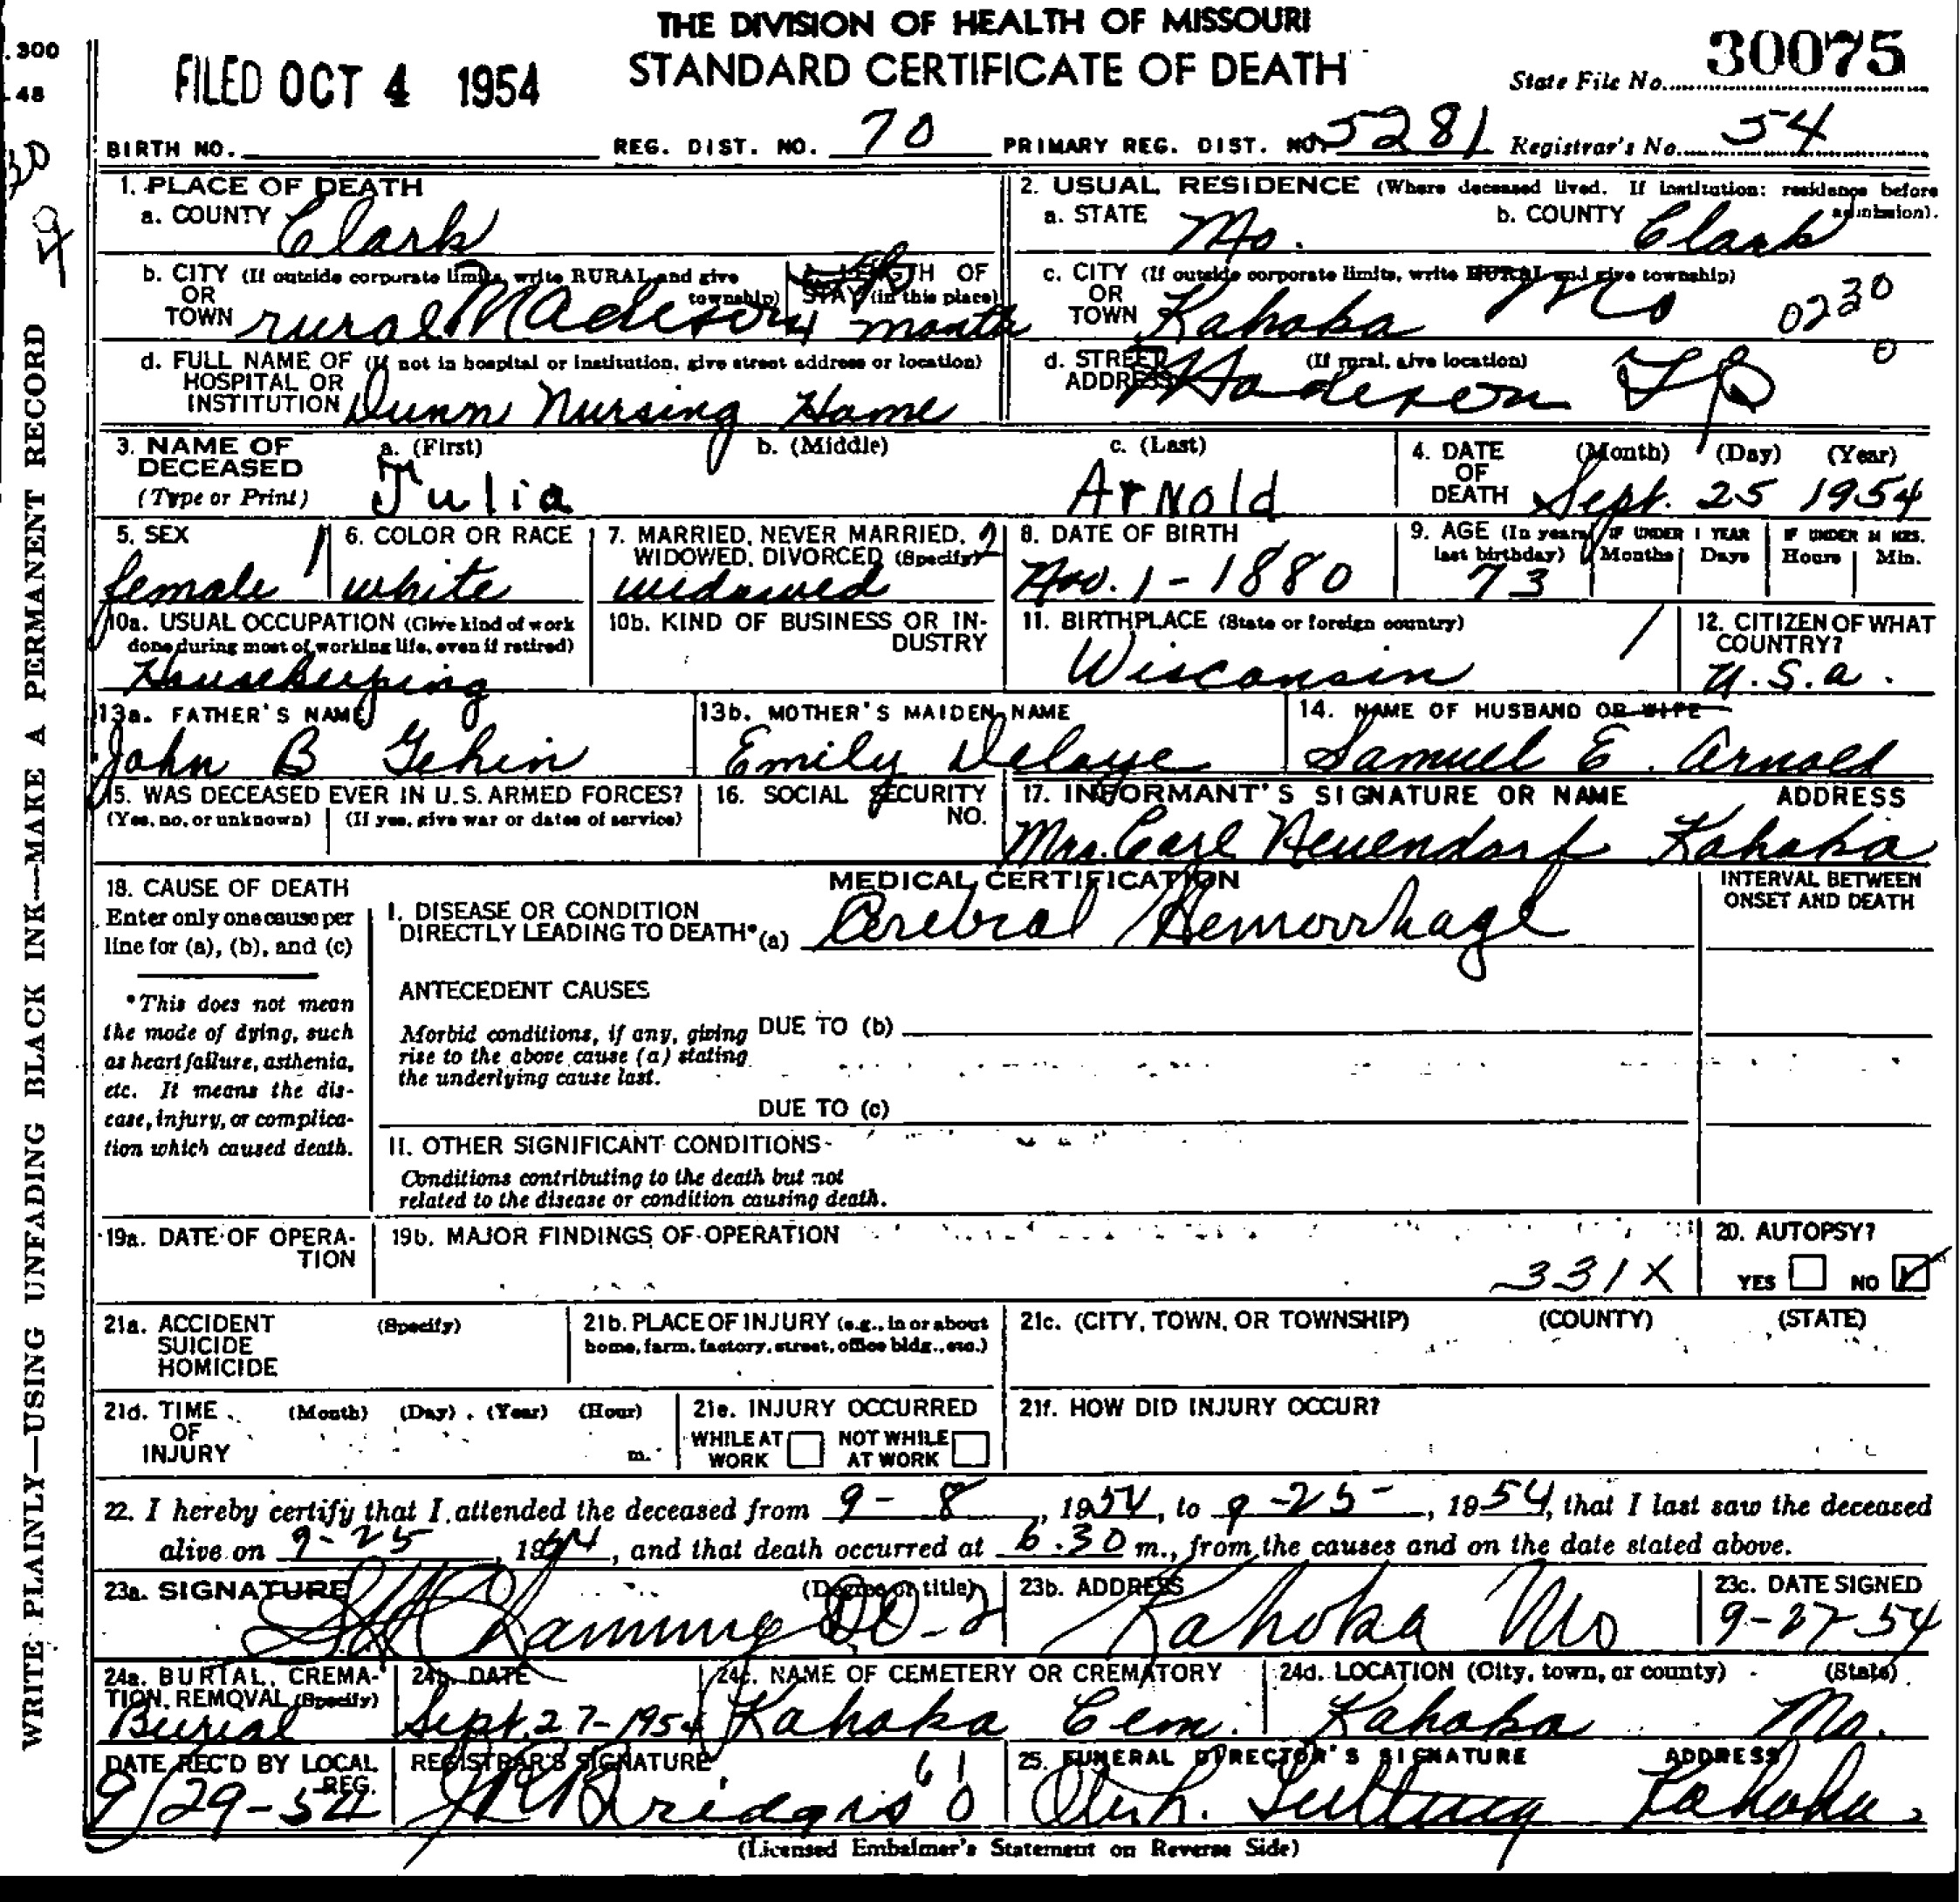 THE DIVISION OF HEALTH OF MISSOURI
STANDARD CERTIFICATE OF DEATH
FILED OCT 4 1954
State File No. 30075
.300
.48
BIRTH NO.
REG. DIST. NO. 70
PRIMARY REG. DIST. NO. 5281
Registrar's No. 54
WRITE PLAINLY—USING UNFADING BLACK INK—MAKE A PERMANENT RECORD
1. PLACE OF DEATH
a. COUNTY Clark
b. CITY (If outside corporate limits, write RURAL and give township)
OR
TOWN rural Madison
LENGTH OF
STAY (in this place)
4 month
d. FULL NAME OF (If not in hospital or institution, give street address or location)
HOSPITAL OR
INSTITUTION Dunn Nursing Home
2. USUAL RESIDENCE (Where deceased lived. If institution: residence before admission).
a. STATE Mo.
b. COUNTY Clark
c. CITY (If outside corporate limits, write RURAL and give township)
OR
TOWN Kahoka Mo
0230
0
d. STREET (If rural, give location)
ADDRESS Madison Tp
3. NAME OF DECEASED
(Type or Print)
a. (First) Julia
b. (Middle)
c. (Last) Arnold
4. DATE OF DEATH (Month) (Day) (Year)
Sept. 25 1954
5. SEX
female
6. COLOR OR RACE
white
7. MARRIED, NEVER MARRIED, WIDOWED, DIVORCED (Specify)
widowed
8. DATE OF BIRTH
Nov. 1-1880
9. AGE (In years last birthday)
73
IF UNDER 1 YEAR
Months Days
IF UNDER 24 HRS.
Hours Min.
10a. USUAL OCCUPATION (Give kind of work done during most of working life, even if retired)
Housekeeping
10b. KIND OF BUSINESS OR INDUSTRY
11. BIRTHPLACE (State or foreign country)
Wisconsin
12. CITIZEN OF WHAT COUNTRY?
U.S.a.
13a. FATHER'S NAME
John B Gehin
13b. MOTHER'S MAIDEN NAME
Emily Delaye
14. NAME OF HUSBAND OR WIFE
Samuel E. Arnold
15. WAS DECEASED EVER IN U.S. ARMED FORCES?
(Yes, no, or unknown) (If yes, give war or dates of service)
16. SOCIAL SECURITY NO.
17. INFORMANT'S SIGNATURE OR NAME ADDRESS
Mrs. Carl Neuendorf Kahoka
18. CAUSE OF DEATH
Enter only one cause per
line for (a), (b), and (c)
*This does not mean
the mode of dying, such
as heart failure, asthenia,
etc. It means the dis-
ease, injury, or complica-
tion which caused death.
MEDICAL CERTIFICATION
I. DISEASE OR CONDITION
DIRECTLY LEADING TO DEATH* (a) Cerebral Hemorrhage
INTERVAL BETWEEN
ONSET AND DEATH
ANTECEDENT CAUSES
Morbid conditions, if any, giving
rise to the above cause (a) stating
the underlying cause last.
DUE TO (b)
DUE TO (c)
II. OTHER SIGNIFICANT CONDITIONS
Conditions contributing to the death but not
related to the disease or condition causing death.
19a. DATE OF OPERA-
TION
19b. MAJOR FINDINGS OF OPERATION
331X
20. AUTOPSY?
YES NO
21a. ACCIDENT
SUICIDE
HOMICIDE
(Specify)
21b. PLACE OF INJURY (e.g., in or about
home, farm, factory, street, office bldg., etc.)
21c. (CITY, TOWN, OR TOWNSHIP) (COUNTY) (STATE)
21d. TIME OF INJURY (Month) (Day) (Year) (Hour)
m.
21e. INJURY OCCURRED
WHILE AT WORK NOT WHILE AT WORK
21f. HOW DID INJURY OCCUR?
22. I hereby certify that I attended the deceased from 9-8, 1954, to 9-25-, 1954, that I last saw the deceased
alive on 9-25, 1954, and that death occurred at 6:30 m., from the causes and on the date stated above.
23a. SIGNATURE (Degree or title)
DO-2
23b. ADDRESS
Kahoka Mo
23c. DATE SIGNED
9-27-54
24a. BURIAL, CREMA-
TION, REMOVAL (Specify)
Burial
24b. DATE
Sept. 27-1954
24c. NAME OF CEMETERY OR CREMATORY
Kahoka Cem.
24d. LOCATION (City, town, or county) (State)
Kahoka Mo.
DATE REC'D BY LOCAL
REG.
9/29-54
REGISTRAR'S SIGNATURE
25. FUNERAL DIRECTOR'S SIGNATURE ADDRESS
Kahoka
(Licensed Embalmer's Statement on Reverse Side)